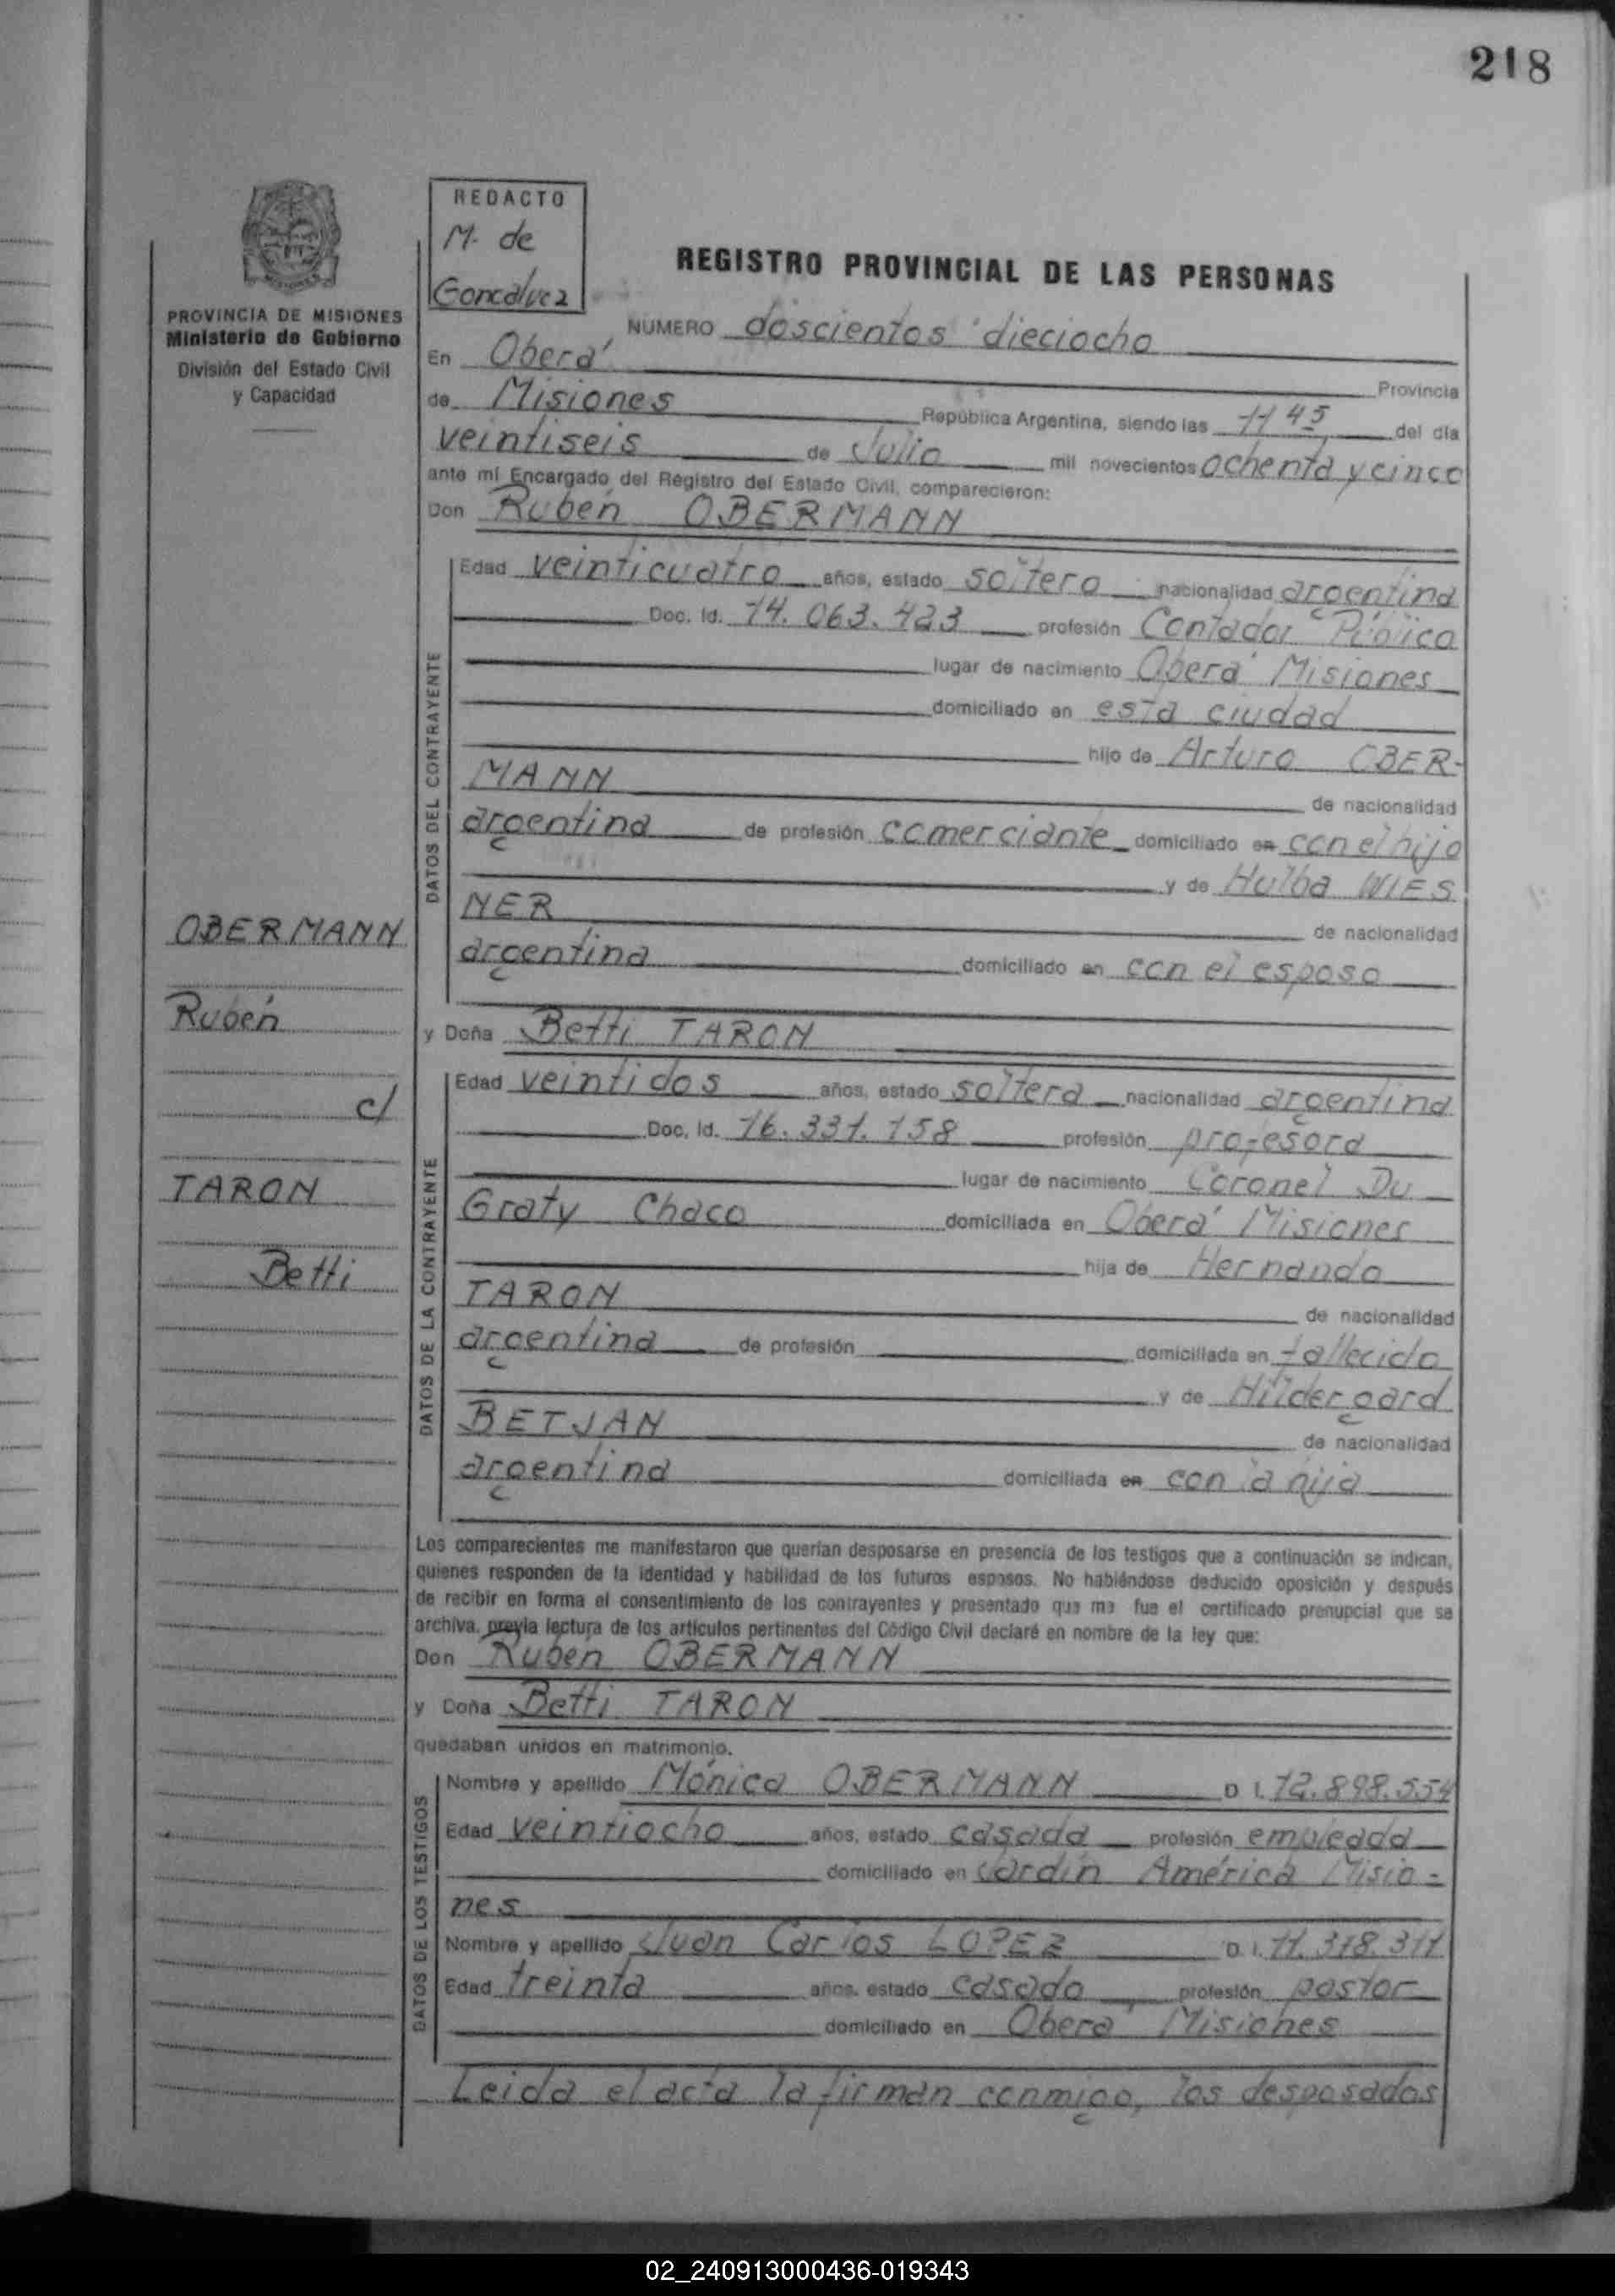 218
REDACTO
M. de
Goncalvez
PROVINCIA DE MISIONES
Ministerio de Gobierno
División del Estado Civil
y Capacidad
REGISTRO PROVINCIAL DE LAS PERSONAS
NUMERO doscientos dieciocho
En Oberá Provincia
de Misiones República Argentina, siendo las 11 45 del día
veintiseis de Julio mil novecientos ochenta y cinco
ante mí Encargado del Registro del Estado Civil, comparecieron:
Don Rubén OBERMANN
DATOS DEL CONTRAYENTE
Edad veinticuatro años, estado soltero nacionalidad argentina
Doc. Id. 14.063.423 profesión Contador Público
lugar de nacimiento Oberá Misiones
domiciliado en esta ciudad
hijo de Arturo OBER-
MANN de nacionalidad
argentina de profesión comerciante domiciliado en con el hijo
y de Hulba WIES
NER de nacionalidad
argentina domiciliado en con el esposo
OBERMANN
Rubén
c/
TARON
Betti
y Doña Betti TARON
DATOS DE LA CONTRAYENTE
Edad veintidos años, estado soltera nacionalidad argentina
Doc. Id. 16.331.158 profesión profesora
lugar de nacimiento Coronel Du
Graty Chaco domiciliada en Oberá Misiones
hija de Hernando
TARON de nacionalidad
argentina de profesión domiciliada en fallecido
y de Hildergard
BETJAN de nacionalidad
argentina domiciliada en con la hija
Los comparecientes me manifestaron que querían desposarse en presencia de los testigos que a continuación se indican,
quienes responden de la identidad y habilidad de los futuros esposos. No habiéndose deducido oposición y después
de recibir en forma el consentimiento de los contrayentes y presentado que me fue el certificado prenupcial que se
archiva, previa lectura de los artículos pertinentes del Código Civil declaré en nombre de la ley que:
Don Rubén OBERMANN
y Doña Betti TARON
quedaban unidos en matrimonio.
DATOS DE LOS TESTIGOS
Nombre y apellido Mónica OBERMANN D I. 12.898.554
Edad veintiocho años, estado casada profesión empleada
domiciliado en Jardín América Misio-
nes
Nombre y apellido Juan Carlos LOPEZ D. I. 11.378.311
Edad treinta años, estado casado profesión pastor
domiciliado en Oberá Misiones
Leida el acta la firman conmigo, los desposados
02_240913000436-019343